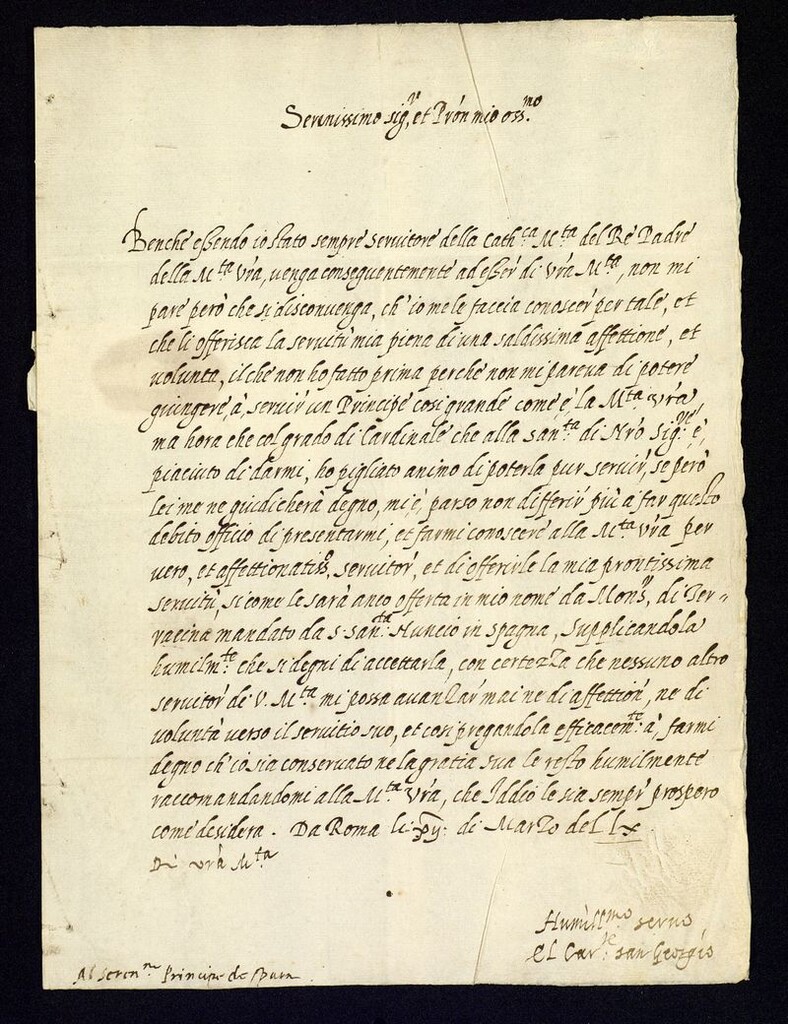 Serenissimo sig.re et Prón mio oss.mo
Benche essendo io stato sempre servitore della Cath.ca M.ta del Re Padre
della M.ta Vrá, venga conseguentemente ad essér di Vrá M.ta, non mi
pare però che si disconvenga, ch'io me le faccia conoscér per tale, et
che li offerisca la servitù mia piena di una saldissima affettione, et
volunta, il che non ho fatto prima perche non mi pareva di potere
giungere, à, servir un Principe cosi grande come é, la M.ta Vrá,
ma hora che col grado di Cardinale che alla san.ta di Nró Sig.re é,
piaciuto di darmi, ho pigliato animo di poterla pur servir, se però
lei me ne giudicherà degno, mi é, parso non differir più a far questo
debito officio di presentarmi, et farmi conoscere alla M.ta Vrá per
vero, et affettionatiss.o servitor, et di offerirle la mia prontissima
servitù, si come le sarà anco offerta in mio nome da Mons.r di Ter-
racina mandato da S. San.ta Nuncio in Spagna, Supplicandola
humilm.te che si degni di accettarla, con certezza che nessuno altro
servitor de V. M.ta mi possa avanzar mai ne di affettion, ne di
voluntà verso il servitio suo, et cosi pregandola efficacem.te à, farmi
degno ch'io sia conservato ne la gratia sua le resto humilmente
raccomandandomi alla M.ta Vrá, che Iddio le sia sempr prospero
come desidera. Da Roma li di Marzo del lx
Di vrá M.ta
Humill.mo servo
El Car.le san Georgio
Al Seren.mo Principe de